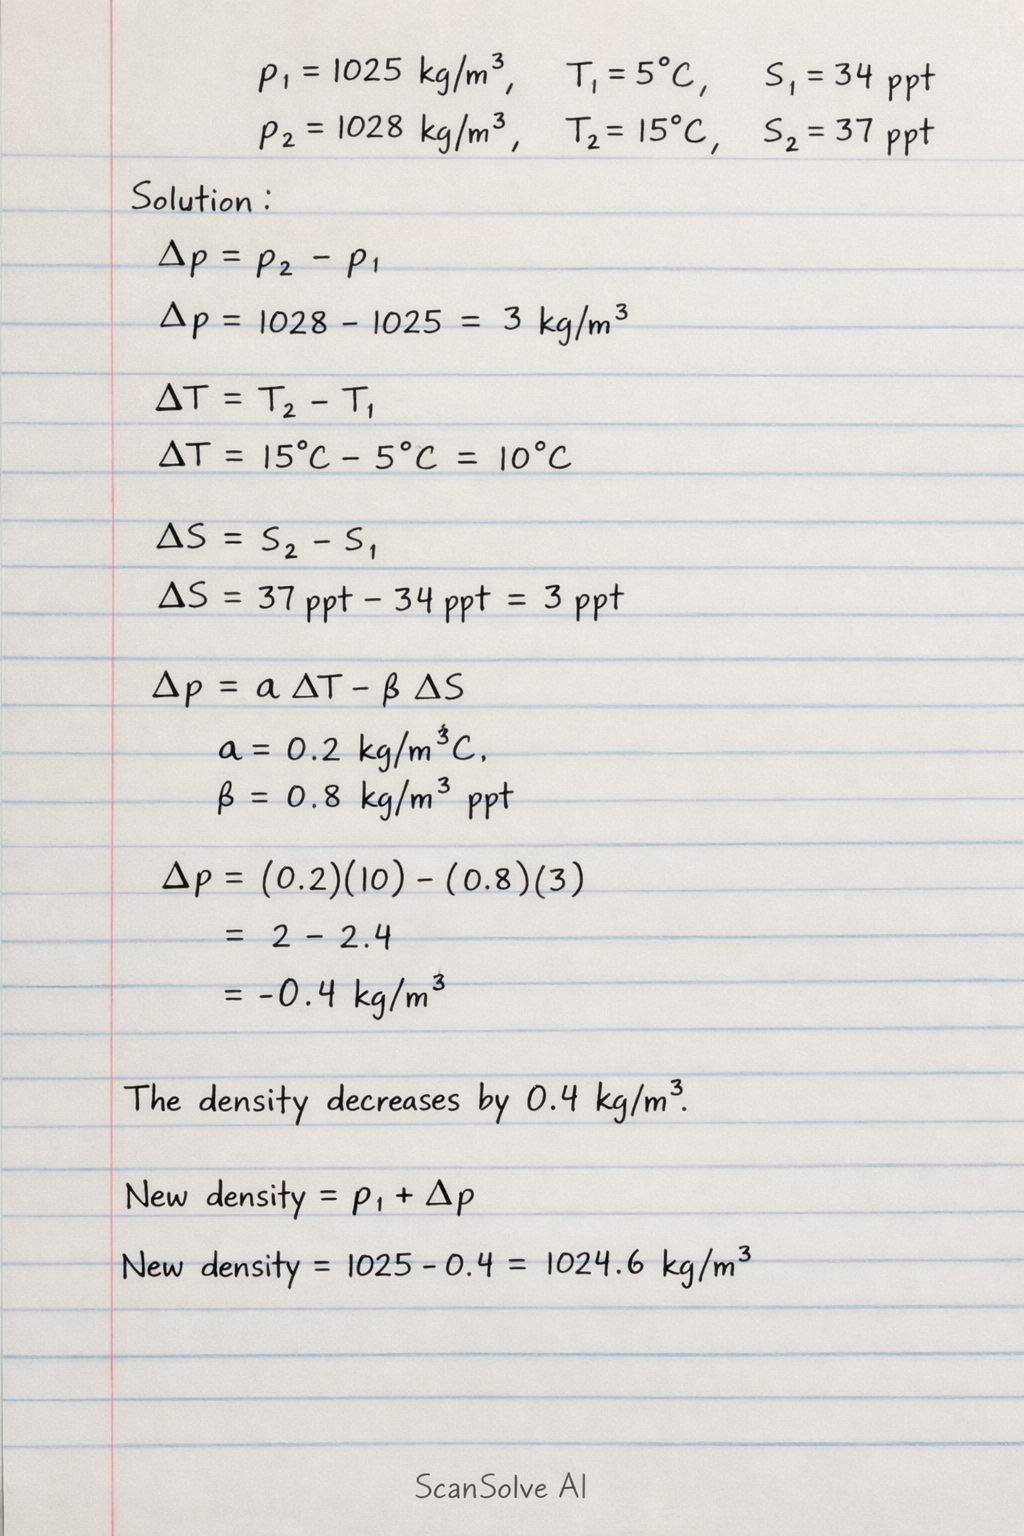 p₁ = 1025 kg/m³, T₁ = 5°C, S₁ = 34 ppt
p₂ = 1028 kg/m³, T₂ = 15°C, S₂ = 37 ppt
Solution :
Δp = p₂ - p₁
Δp = 1028 - 1025 = 3 kg/m³
ΔT = T₂ - T₁
ΔT = 15°C - 5°C = 10°C
ΔS = S₂ - S₁
ΔS = 37 ppt - 34 ppt = 3 ppt
Δp = a ΔT - β ΔS
a = 0.2 kg/m³C,
β = 0.8 kg/m³ ppt
Δp = (0.2)(10) - (0.8)(3)
= 2 - 2.4
= -0.4 kg/m³
The density decreases by 0.4 kg/m³.
New density = p₁ + Δp
New density = 1025 - 0.4 = 1024.6 kg/m³
ScanSolve AI